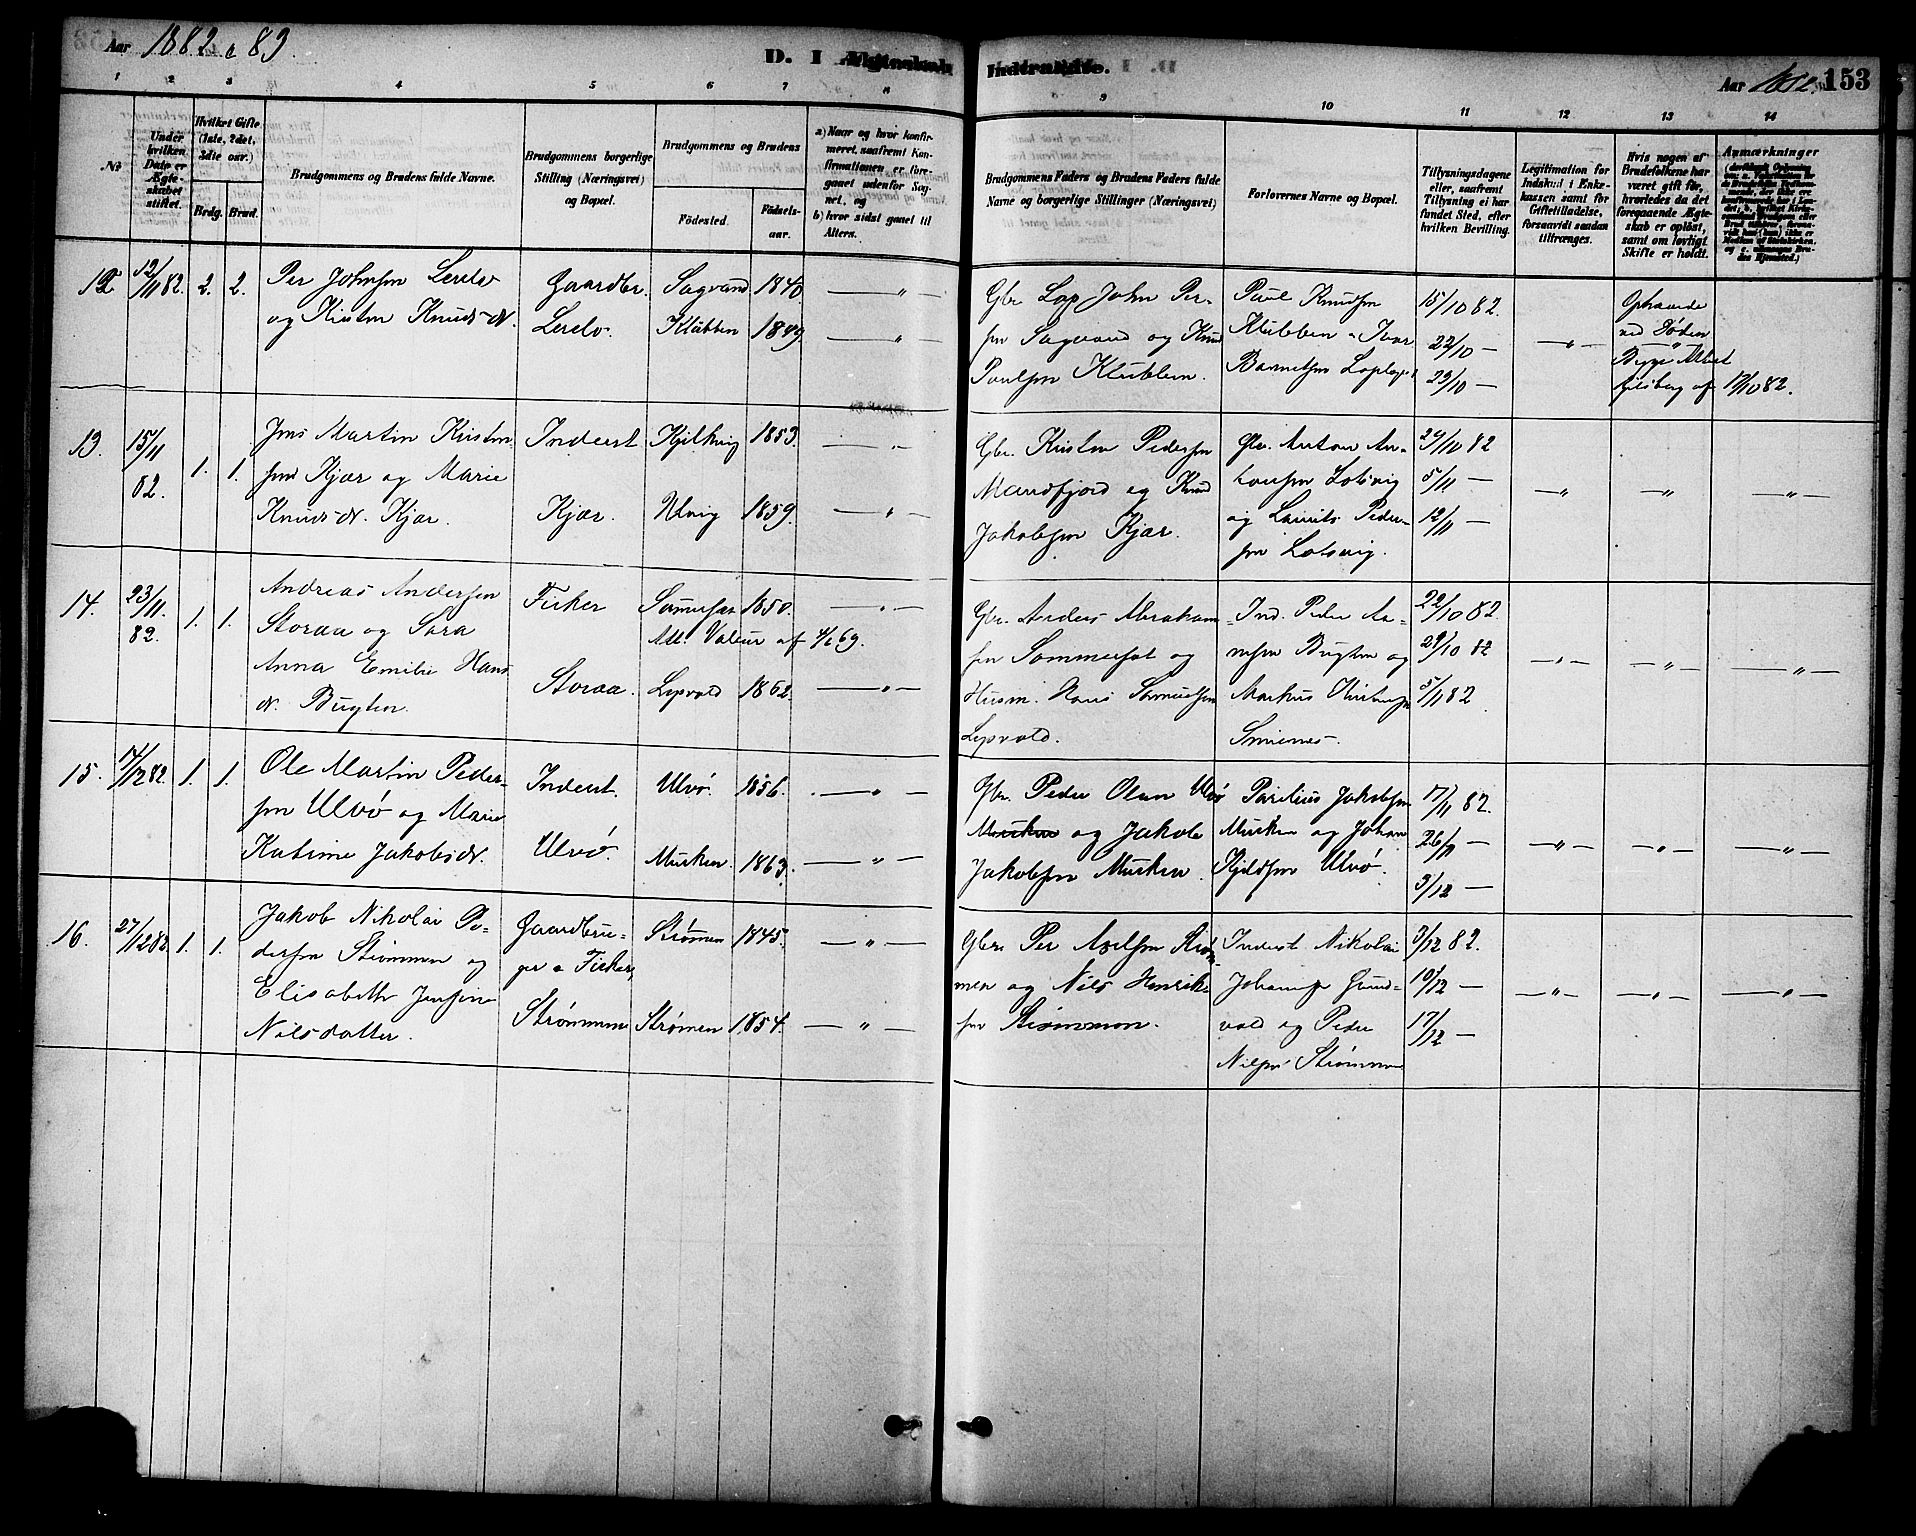 Aar 1882 & 83
D. I Ægteskab Indtraadte.
Aar 1882. 153
1 2 3 4 5 6 7 8 9 10 11 12 13 14
No
Under hvilken Dato er Ægteskabet stiftet.
Hvilket Gifte (1ste, 2det, 3die osv.)
Brdg. Brud.
Brudgommens og Brudens fulde Navne.
Brudgommens borgerlige Stilling (Næringsvei) og Bopæl.
Brudgommens og Brudens
Fødested.
Fødsels-aar.
a) Naar og hvor konfirmeret, saafremt Konfirmationen er foregaaet udenfor Sognet, og
b) hvor sidst gaaet til Alters.
Brudgommens Faders og Brudens Faders fulde Navne og borgerlige Stillinger (Næringsvei)
Forlovernes Navne og Bopæl.
Tillysningsdagene eller, saafremt Tillysning ei har fundet Sted, efter hvilken Bevilling.
Legitimation for Indskud i Enkekassen samt for Giftetilladelse, forsaavidt saadan tiltrænges.
Hvis nogen af Brudefolkene har været gift før, hvorledes da det foregaaende Ægteskab er opløst, samt om lovligt Skifte er holdt.
Anmærkninger
12 12/11 82. 2. 2.
Per Johnsen Lerelv
og Kirsten Knuds-dr.
Gaardbr.
Lerelv.
Sagvand 1840 — " —
Klubben 1849 — " —
Gbr. Lap John Per-
sen Sagvand og Knud
Poulsen Klubben.
Paul Knudsen
Klubben & Ivar
15/10 82.
22/10 —
29/10 —
— " —
Ophævede
ved Døden
17/10 82.
13. 15/11 82. 1. 1.
Jens Martin Kristen-
sen Kjær og Marie
Knuds-dr. Kjær.
Inderst
Kjær.
1853. — " —
1859. — " —
Gbr. Kristen Pedersen
og Knud
Jakobsen Kjær.
Gbr. Anton An-
tonsen Lotsvig
og Laurits Peder-
sen Lotsvig.
29/10 82
5/11 —
12/11 —
— " — — " — — " —
14. 23/11 82. 1. 1.
Andreas Andersen
Storaa og Sara
Anna Emilie Hans
dr. Bugten.
Fisker
Storaa.
1850. — " —
Att. Valeur af 4/6 69.
Lapvold 1862. — " —
Gbr. Anders Abraham
sen Sommerset og
Husm. Hans Samuelsen
Lapvold.
Ind. Peder
Bugten og
Markus
22/10 82.
29/10 82
5/11 82.
— " — — " — — " —
15. 7/12 82. 1. 1.
Ole Martin Peder-
sen Ulvø og Marie
Katrine Jakobsdr.
Inderst.
Ulvø.
Ulvø. 1856. — " —
Musken. 1863. — " —
Gbr. Peder Olsen Ulvø
Musken og Jakob
Jakobsen Musken.
Jakobsen
Musken og Johan
Kjeldsen Ulvø.
17/11 82.
26/11 —
3/12 —
— " — — " — — " —
16. 27/12 82. 1. 1.
Jakob Nikolai Pe-
dersen Strømmen og
Elisabeth Jensine
Nilsdatter.
Gaardbru-
ger & Fisker,
Strømmen
Strømen 1845. — " —
Strømen 1854. — " —
Gbr. Per Axelsen Strøm-
men og Nils Henrik-
sen Strømmen.
Inderst Nikolai
Johansen Grund-
vold og Peder
Nilsen Strømmen
3/12 82.
10/12 —
17/12 —
— " — — " — — " —